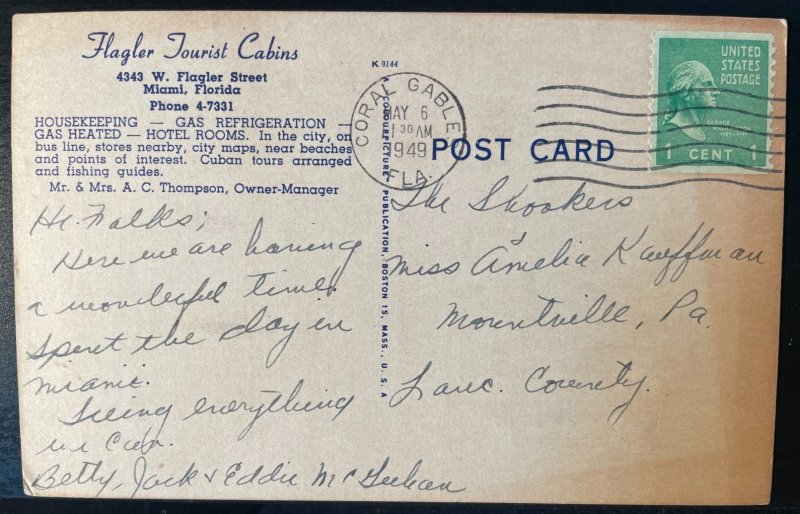 Flagler Tourist Cabins
4343 W. Flagler Street
Miami, Florida
Phone 4-7331
HOUSEKEEPING — GAS REFRIGERATION —
GAS HEATED — HOTEL ROOMS. In the city, on
bus line, stores nearby, city maps, near beaches
and points of interest. Cuban tours arranged
and fishing guides.
Mr. & Mrs. A. C. Thompson, Owner-Manager
Hi Folks;
Here we are having
a wonderful time.
Spent the day in
Miami.
Seeing everything
we can.
Betty, Jack & Eddie McGeehan
K 9144
A COLOURPICTURE PUBLICATION, BOSTON 15, MASS., U. S. A
CORAL GABLE
MAY 6
1 30 AM
1949
FLA.
POST CARD
UNITED
STATES
POSTAGE
GEORGE
WASHINGTON
1789-1797
1 CENT 1
The Shookers
Miss Amelia Kauffman
Mountville, Pa.
Lanc. County.